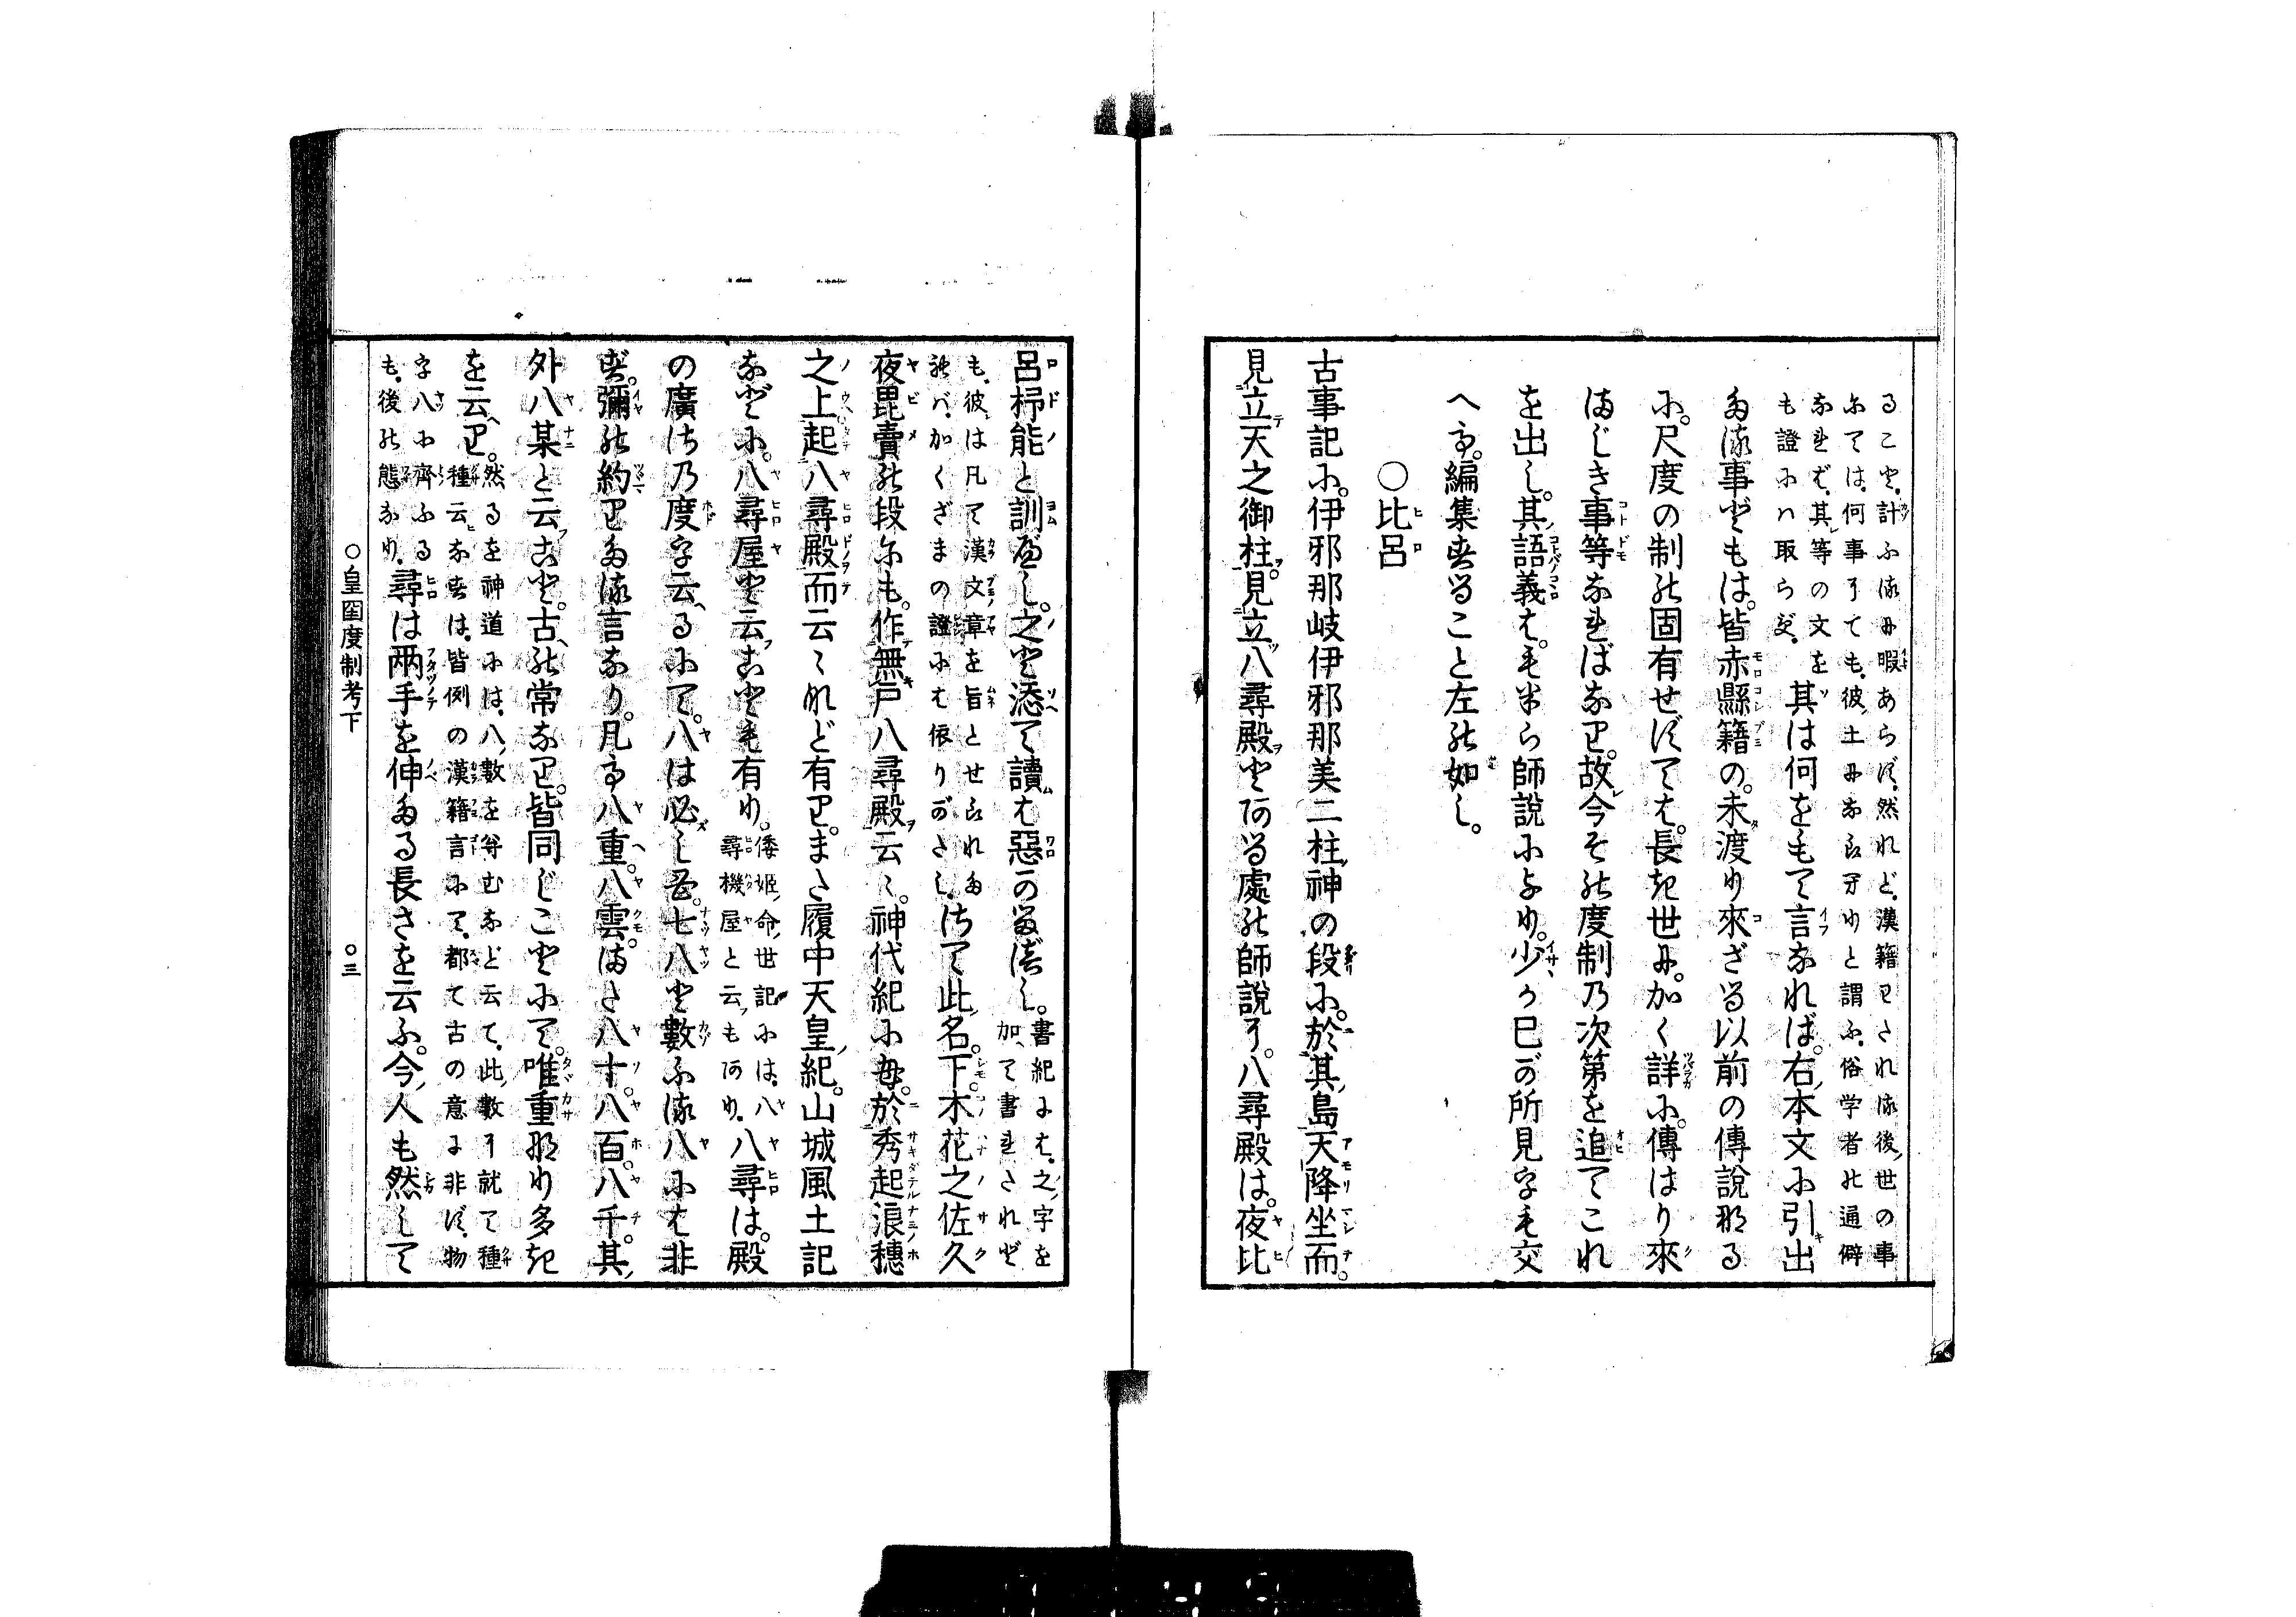 ること。計ふる暇あらず。然れど。漢籍わたれる後世の事
にては。何事にても。彼土にならへりと謂ふ。俗学者の通僻
なれば。其等の文を
も證には取らず。其は何をもて言なれば。右本文に引出
たる事どもは。皆赤縣籍の。未渡り來ざる以前の傳説なる
に。尺度の制の固有せずては。長き世に。加く詳に。傳はり來
まじき事等なればなり。故今その度制の次第を追てこれ
を出し。其語義は。もはら師説により。少か己が所見字も交
へて。編集せること左の如し。
○比呂
古事記に。伊邪那岐伊邪那美二柱神の段に。於其島天降坐而。
見立天之御柱。見立八尋殿とある處の師説に。八尋殿は。夜比
呂杼能と訓べし。之と添て讀は惡かるべし。書紀には。之字を
加て書れたれど
も。彼は凡て漢文章を旨とせられた
れば。かくざまの證には依りがたし。さて此名。下木花之佐久
夜毘賣の段にも。作無戸八尋殿云々。神代紀にも。於秀起浪穗
之上起八尋殿而云々など有り。また履中天皇紀。山城風土記
などに。八尋屋と云ことも有り。倭姫命世記には。八
尋機屋と云もあり。八尋は。殿
の廣さの度を云るにて。八は必しも。七八と數ふる八には非
ず。彌の約りたる言なり。凡て八重。八雲。また八十。八百。八千。其
外八某と云こと。古の常なり。皆同じことにて。唯重なり多き
を云り。然るを神道には。八數を尊むなど云て。此數に就て種
種云なせるは。皆例の漢籍言にて。都て古の意に非ず。物
字八に齊ふる
も。後の態なり。尋は兩手を伸たる長さを云ふ。今人も然して
○皇國度制考下 ○三